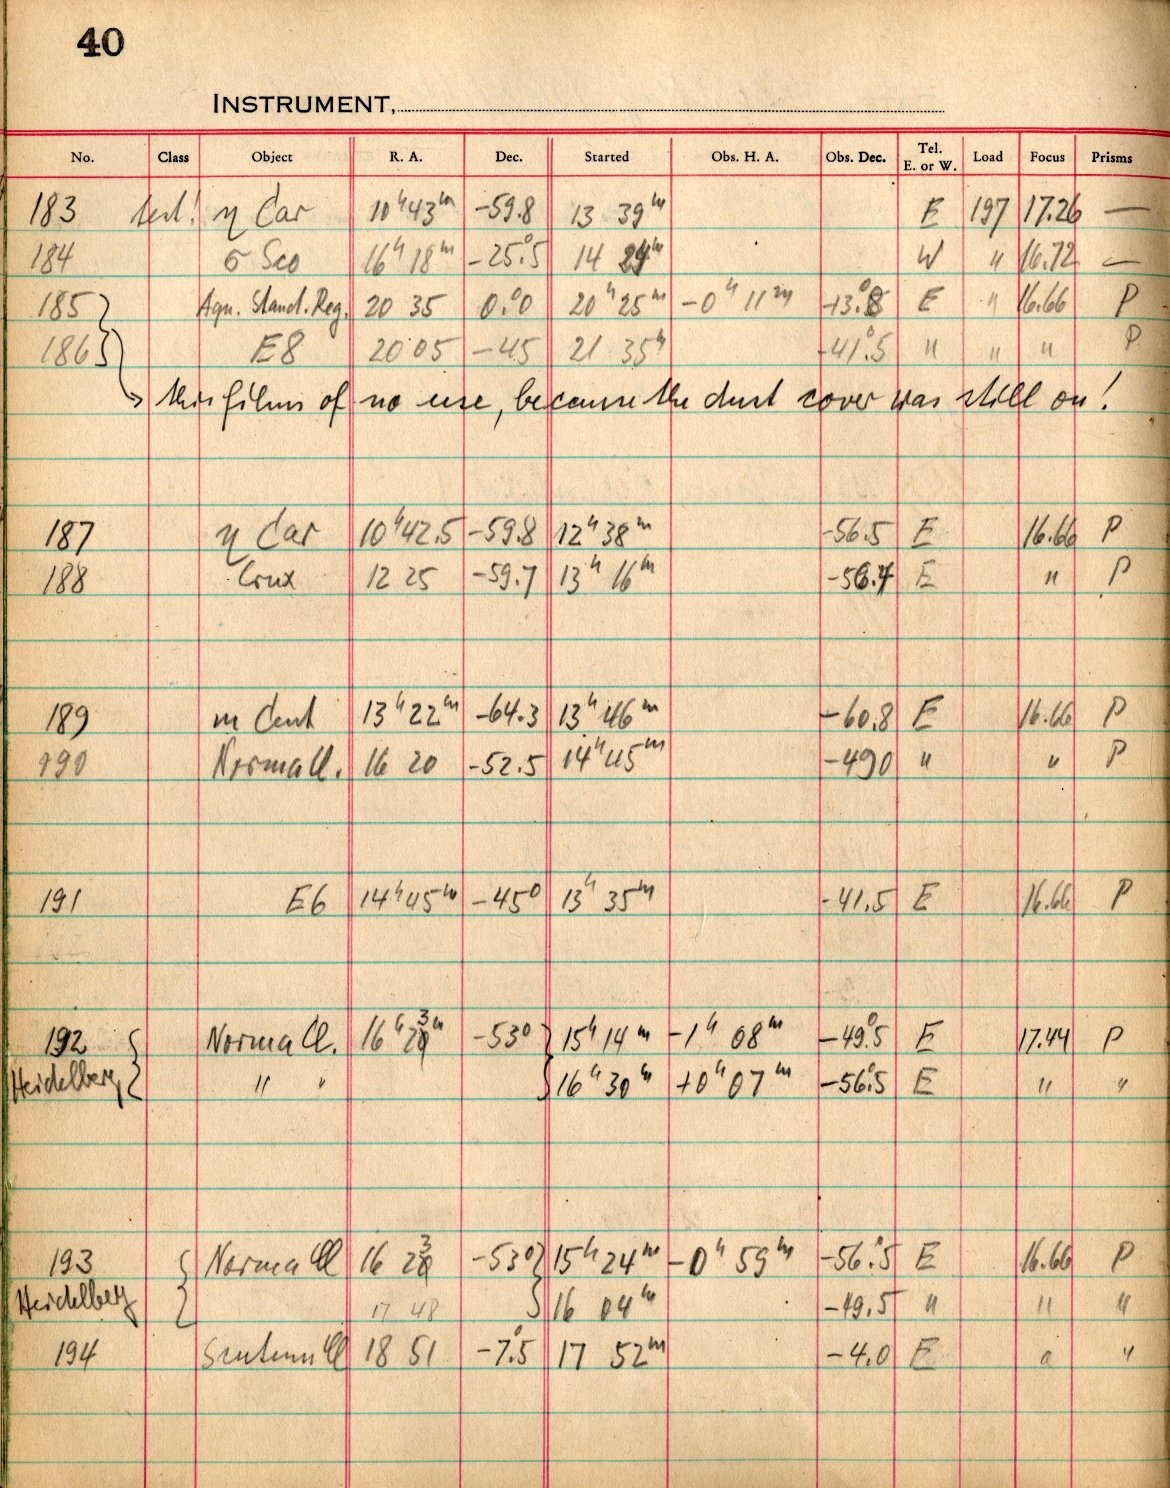 40
INSTRUMENT,
No. Class Object R. A. Dec. Started Obs. H. A. Obs. Dec. Tel. E. or W. Load Focus Prisms
183 test! η Car 10ʰ43ᵐ -59.8 13 39ᵐ E 197 17.26 —
184 σ Sco 16ʰ 18ᵐ -25°.5 14 29ᵐ W " 16.72 —
185 Aqu. Stand. Reg. 20 35 0°.0 20ʰ 25ᵐ -0ʰ 11ᵐ +3°.8 E " 16.66 P
186 E8 20 05 -45 21 35ʰ -41°.5 " " " P
this films of no use, because the dust cover was still on!
187 η Car 10ʰ42.5 -59.8 12ʰ 38ᵐ -56.5 E 16.66 P
188 Crux 12 25 -59.7 13ʰ 16ᵐ -56.4 E " P
189 m Cent 13ʰ 22ᵐ -64.3 13ʰ 46ᵐ -60.8 E 16.66 P
190 Norma Cl. 16 20 -52.5 14ʰ 45ᵐ -490 " " P
191 E6 14ʰ45ᵐ -45° 13ʰ 35ᵐ -41.5 E 16.66 P
192 Norma Cl. 16ʰ 23ᵐ -53° 15ʰ 14ᵐ -1ʰ 08ᵐ -49°.5 E 17.44 P
Heidelberg " " 16ʰ 30ᵐ +0ʰ 07ᵐ -56°.5 E " "
193 Norma Cl 16 23 -53° 15ʰ 24ᵐ -0ʰ 59ᵐ -56°.5 E 16.66 P
Heidelberg 17 48 16 04ᵐ -49.5 " " "
194 Scutum Cl 18 51 -7°.5 17 52ᵐ -4.0 E " "